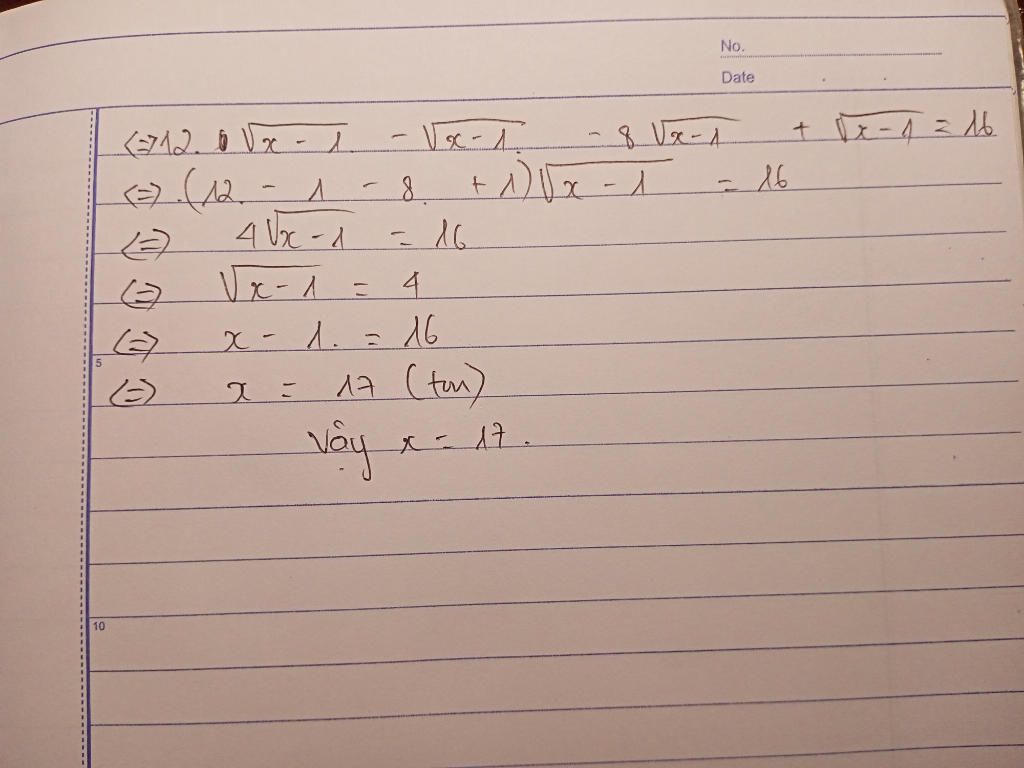 No.
Date
<=> 12. √x-1 - √x-1 - 8√x-1 + √x-1 = 16
<=> (12 - 1 - 8 + 1)√x-1 = 16
<=> 4√x-1 = 16
<=> √x-1 = 4
<=> x - 1 = 16
5
<=> x = 17 (tm)
Vậy x = 17.
10